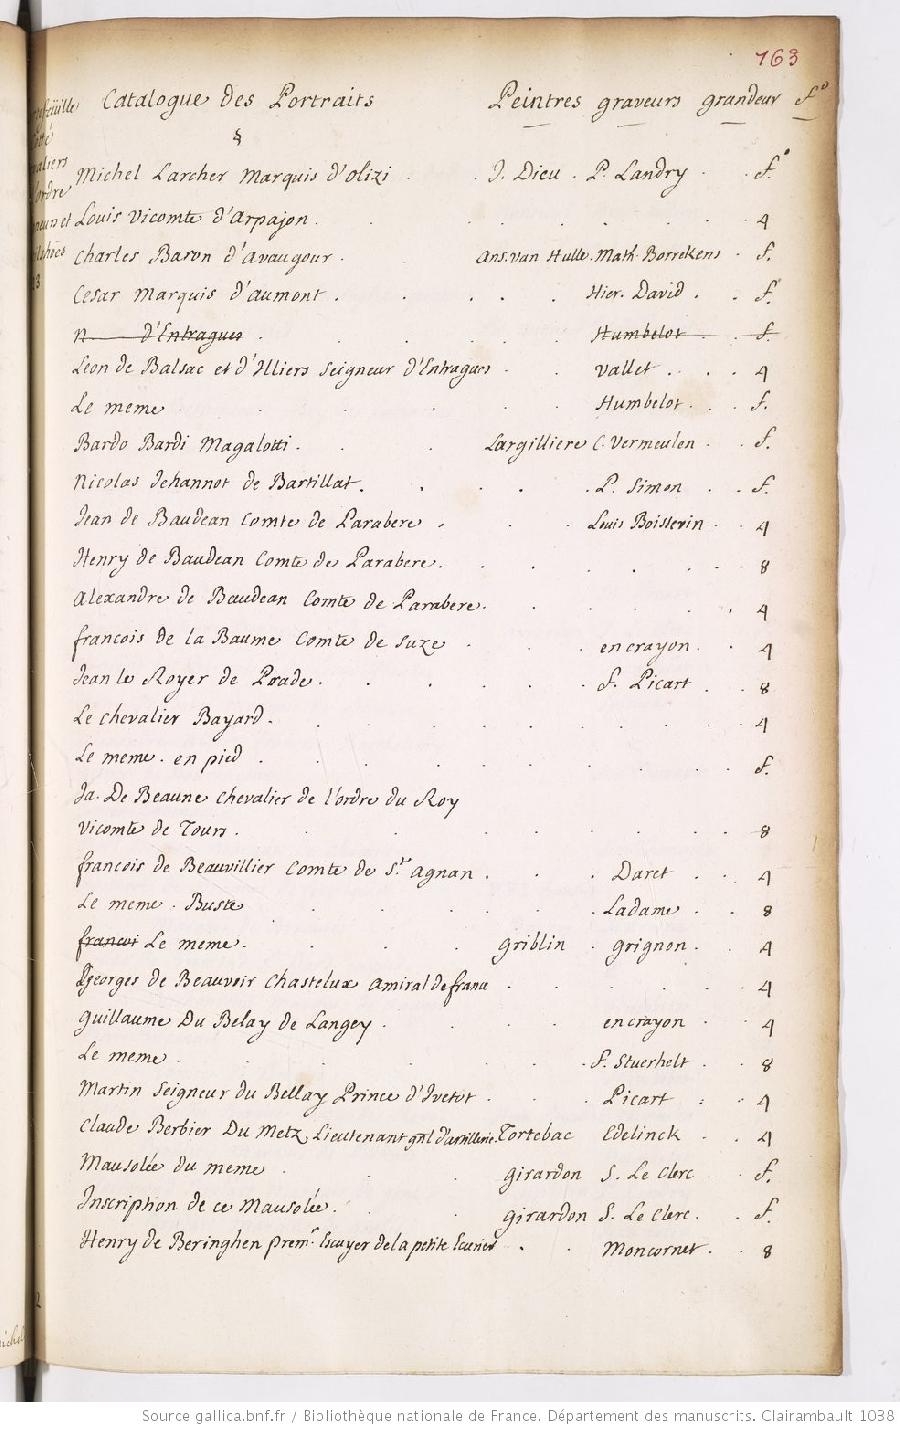 763
Catalogue des Portraits Peintres graveurs grandeur fº
§
Michel Larcher Marquis d'Olizi J. Dieu P. Landry fº
Louis Vicomte d'Arpajon 4
Charles Baron d'Avaugour Ans. van Hulle Math. Borrekens f.
Cesar Marquis d'Aumont Hier. David fº
N d'Entragues Humbelot f.
Leon de Balsac et d'Illiers Seigneur d'Entragues Vallet 4
Le meme Humbelot f.
Bardo Bardi Magalotti Largilliere C. Vermeulen f.
Nicolas Jehannot de Bartillat P. Simon f.
Jean de Baudean Comte de Parabere Louis Boisserin 4
Henry de Baudean Comte de Parabere 8
Alexandre de Baudean Comte de Parabere 4
francois de la Baume Comte de Suze en crayon 4
Jean le Royer de Prade f. Picart 8
Le Chevalier Bayard 4
Le meme en pied f.
Ja. De Beaune chevalier de l'ordre du Roy
Vicomte de Tours 8
francois de Beauvillier Comte de St Agnan Daret 4
Le meme Buste Ladame 8
francoi Le meme griblin grignon 4
Georges de Beauvoir Chastelux Amiral de france 4
Guillaume Du Belay de Langey en crayon 4
Le meme f. Stuerhelt 8
Martin Seigneur du Bellay Prince d'Ivetot Picart 4
Claude Berbier Du Metz Lieutenant gnl d'artillerie Tortebac Edelinck 4
Mausolée du meme Girardon S. Le Clerc f.
Inscription de ce Mausolée Girardon S. Le Clerc f.
Henry de Beringhen premr Ecuyer de la petite Ecurie Moncornet 8
Source gallica.bnf.fr / Bibliothèque nationale de France. Département des manuscrits. Clairambault 1038